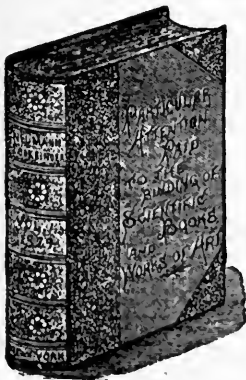 PARTICULAR
ATTENTION
PAID
TO THE
BINDING OF
SCIENTIFIC
BOOKS
AND
WORKS OF ART
NEW-YORK